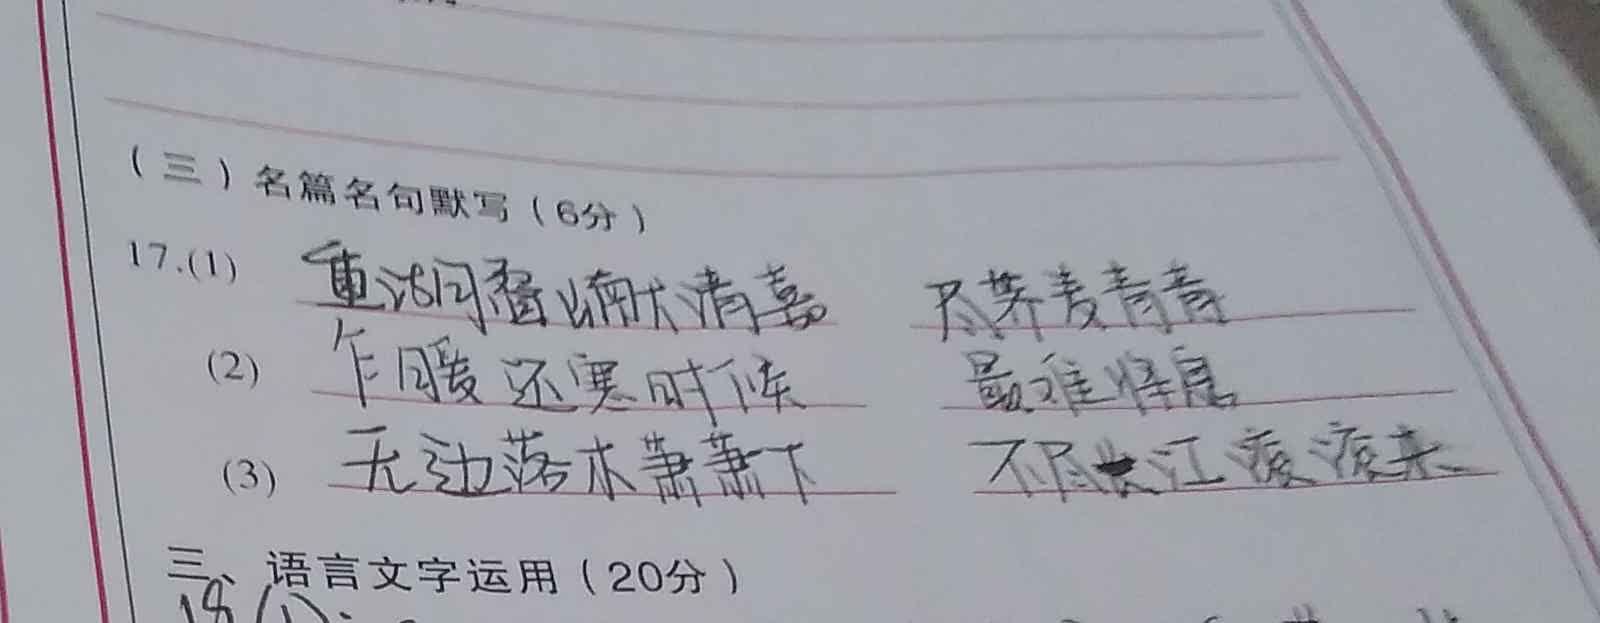 （三）名篇名句默写（6分）
17.(1) 重湖叠巘清嘉 尽荠麦青青
(2) 乍暖还寒时候 最难将息
(3) 无边落木萧萧下 不尽长江滚滚来
三、语言文字运用（20分）
18(1):